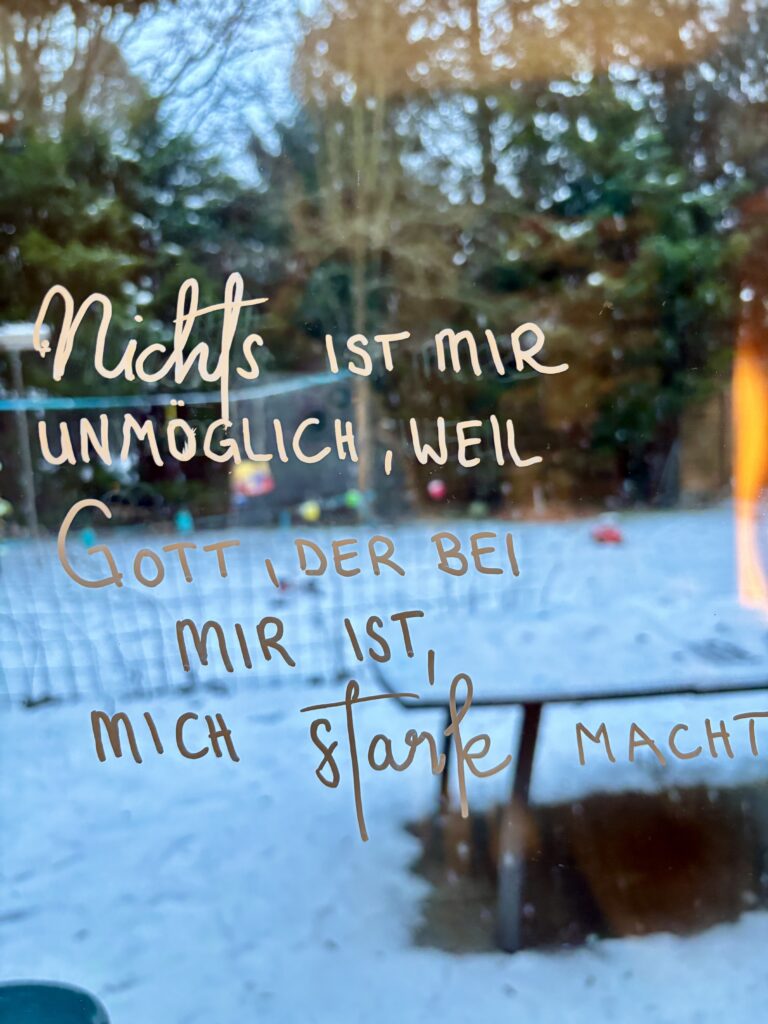 Nichts IST MIR
UNMÖGLICH, WEIL
GOTT, DER BEI
MIR IST,
MICH stark MACHT